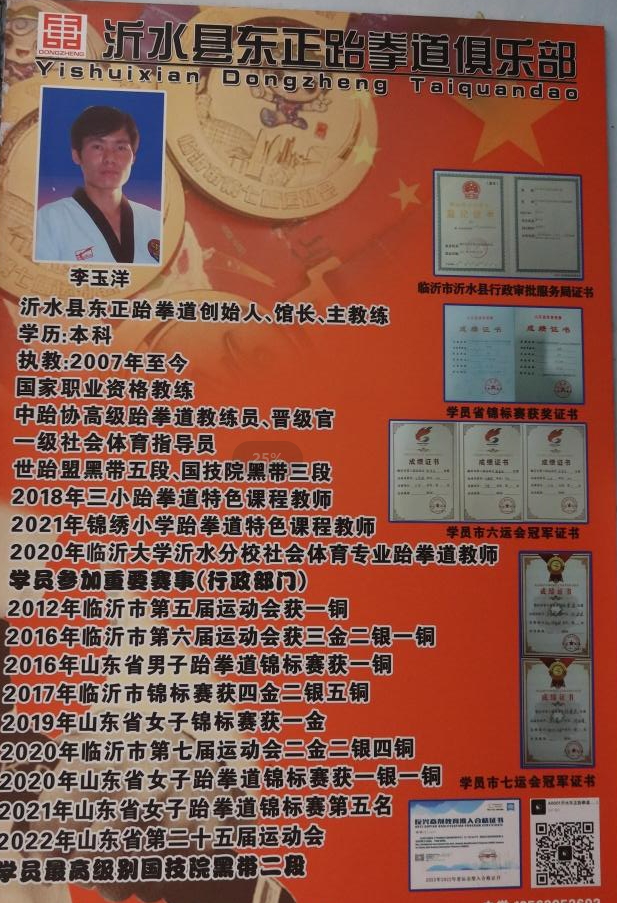 DONGZHENG
沂水县东正跆拳道俱乐部
Yishuixian Dongzheng Taiquandao
临沂市第七届运动会
李玉洋
沂水县东正跆拳道创始人、馆长、主教练
学历:本科
执教:2007年至今
国家职业资格教练
中跆协高级跆拳道教练员、晋级官
一级社会体育指导员
世跆盟黑带五段、国技院黑带三段
2018年三小跆拳道特色课程教师
2021年锦绣小学跆拳道特色课程教师
2020年临沂大学沂水分校社会体育专业跆拳道教师
学员参加重要赛事(行政部门)
2012年临沂市第五届运动会获一铜
2016年临沂市第六届运动会获三金二银一铜
2016年山东省男子跆拳道锦标赛获一铜
2017年临沂市锦标赛获四金二银五铜
2019年山东省女子锦标赛获一金
2020年临沂市第七届运动会二金二银四铜
2020年山东省女子跆拳道锦标赛获一银一铜
2021年山东省女子跆拳道锦标赛第五名
2022年山东省第二十五届运动会
学员最高级别国技院黑带二段
25%
登记证书
临沂市沂水县行政审批服务局证书
成绩证书
成绩证书
学员省锦标赛获奖证书
成绩证书
成绩证书
成绩证书
学员市六运会冠军证书
成绩证书
成绩证书
学员市七运会冠军证书